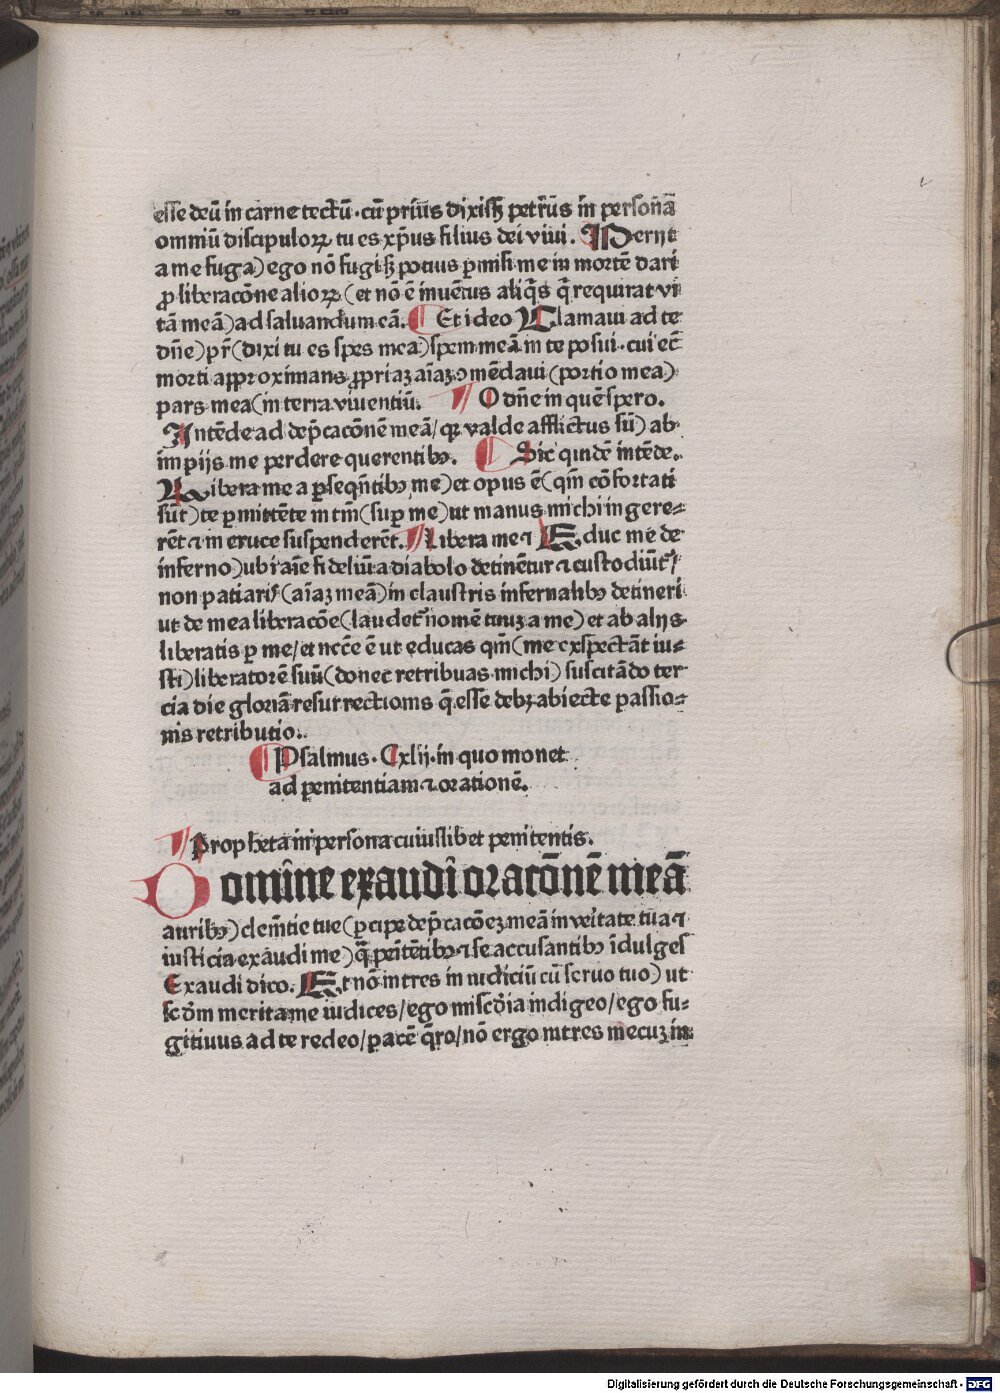 esse deū in carne tectū · cū prius dixissꝫ petrus in persona
omniū discipuloꝝ tu es xp̄us filius dei viui. Perijt
a me fuga) ego nō fugi sꝫ potius ꝑmisi me in mortē dari
ꝓ liberacōne alioꝝ (et nō ē inuētus aliq̄s q̄ requirat vi
tā meā) ad saluandum eā. ¶ Et ideo Clamaui ad te
dn̄e) pr̄ (dixi tu es spes mea) spem meā in te posui · cui etc̄
morti approximans ꝓpriaꝫ aīaꝫ ꝯmēdaui (portio mea)
pars mea (in terra viuentiū. ¶ O dn̄e in quē spero.
Intēde ad dep̄cacōnē meā / qꝛ valde afflictus sū) ab
impijs me perdere querentibꝰ. ¶ Sic quidē intēde.
Libera me a ꝑseqn̄tibꝰ me) et opus ē (qm̄ cōfortati
sūt) te ꝑmittēte in tm̄ (suꝑ me) ut manus michi ingere⸗
rēt ⁊ in cruce suspenderēt. ¶ Libera me ⁊ Educ me de
inferno) ubi aīe fideliū a diabolo detinētur ⁊ custodiūt᷑
non patiaris (aīaꝫ meā) in claustris infernalibꝰ detineri
ut de mea liberacōe (laudet᷑ nomē tuuꝫ a me) et ab alijs
liberatis ꝑ me / et nccē ē ut educas qm̄ (me exspectāt iu⸗
sti) liberatorē suū (donec retribuas michi) suscitādo ter
cia die gloriā resurrectionis q̄ esse debꝫ abiecte passio⸗
nis retributio.
¶ Psalmus · Cxlij · in quo monet
ad penitentiam ⁊ orationē.
¶ Propheta in persona cuiuslibet penitentis.
Domine exaudi oracōnē meā
auribꝰ) clemētie tue (ꝑcipe dep̄cacōeꝫ meā in veritate tua ⁊
iusticia exaudi me) q̄ penitētibꝰ ⁊ se accusantibꝰ īdulges
Exaudi dico. Et nō intres in iudiciū cū seruo tuo) ut
scd̄m merita me iudices / ego misc̄dia indigeo / ego fu⸗
gitiuus ad te redeo / pacē q̄ro / nō ergo intres mecuꝫ in
Digitalisierung gefördert durch die Deutsche Forschungsgemeinschaft - DFG